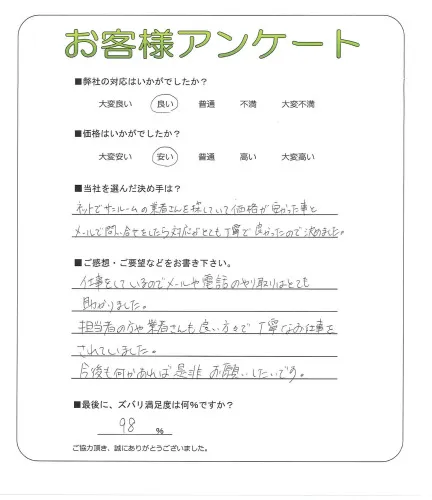 お客様アンケート
■弊社の対応はいかがでしたか？
大変良い 良い 普通 不満 大変不満
■価格はいかがでしたか？
大変安い 安い 普通 高い 大変高い
■当社を選んだ決め手は？
ネットでサンルームの業者さんを探していて価格が安かった事と
メールで問い合せをしたら対応がとても丁寧で良かったので決めました。
■ご感想・ご要望などをお書き下さい。
仕事をしているのでメールや電話のやり取りはとても
助かりました。
担当者の方や業者さんも良い方で丁寧なお仕事を
されていました。
今後も何かあれば是非お願いしたいです。
■最後に、ズバリ満足度は何%ですか？
98 %
ご協力頂き、誠にありがとうございました。